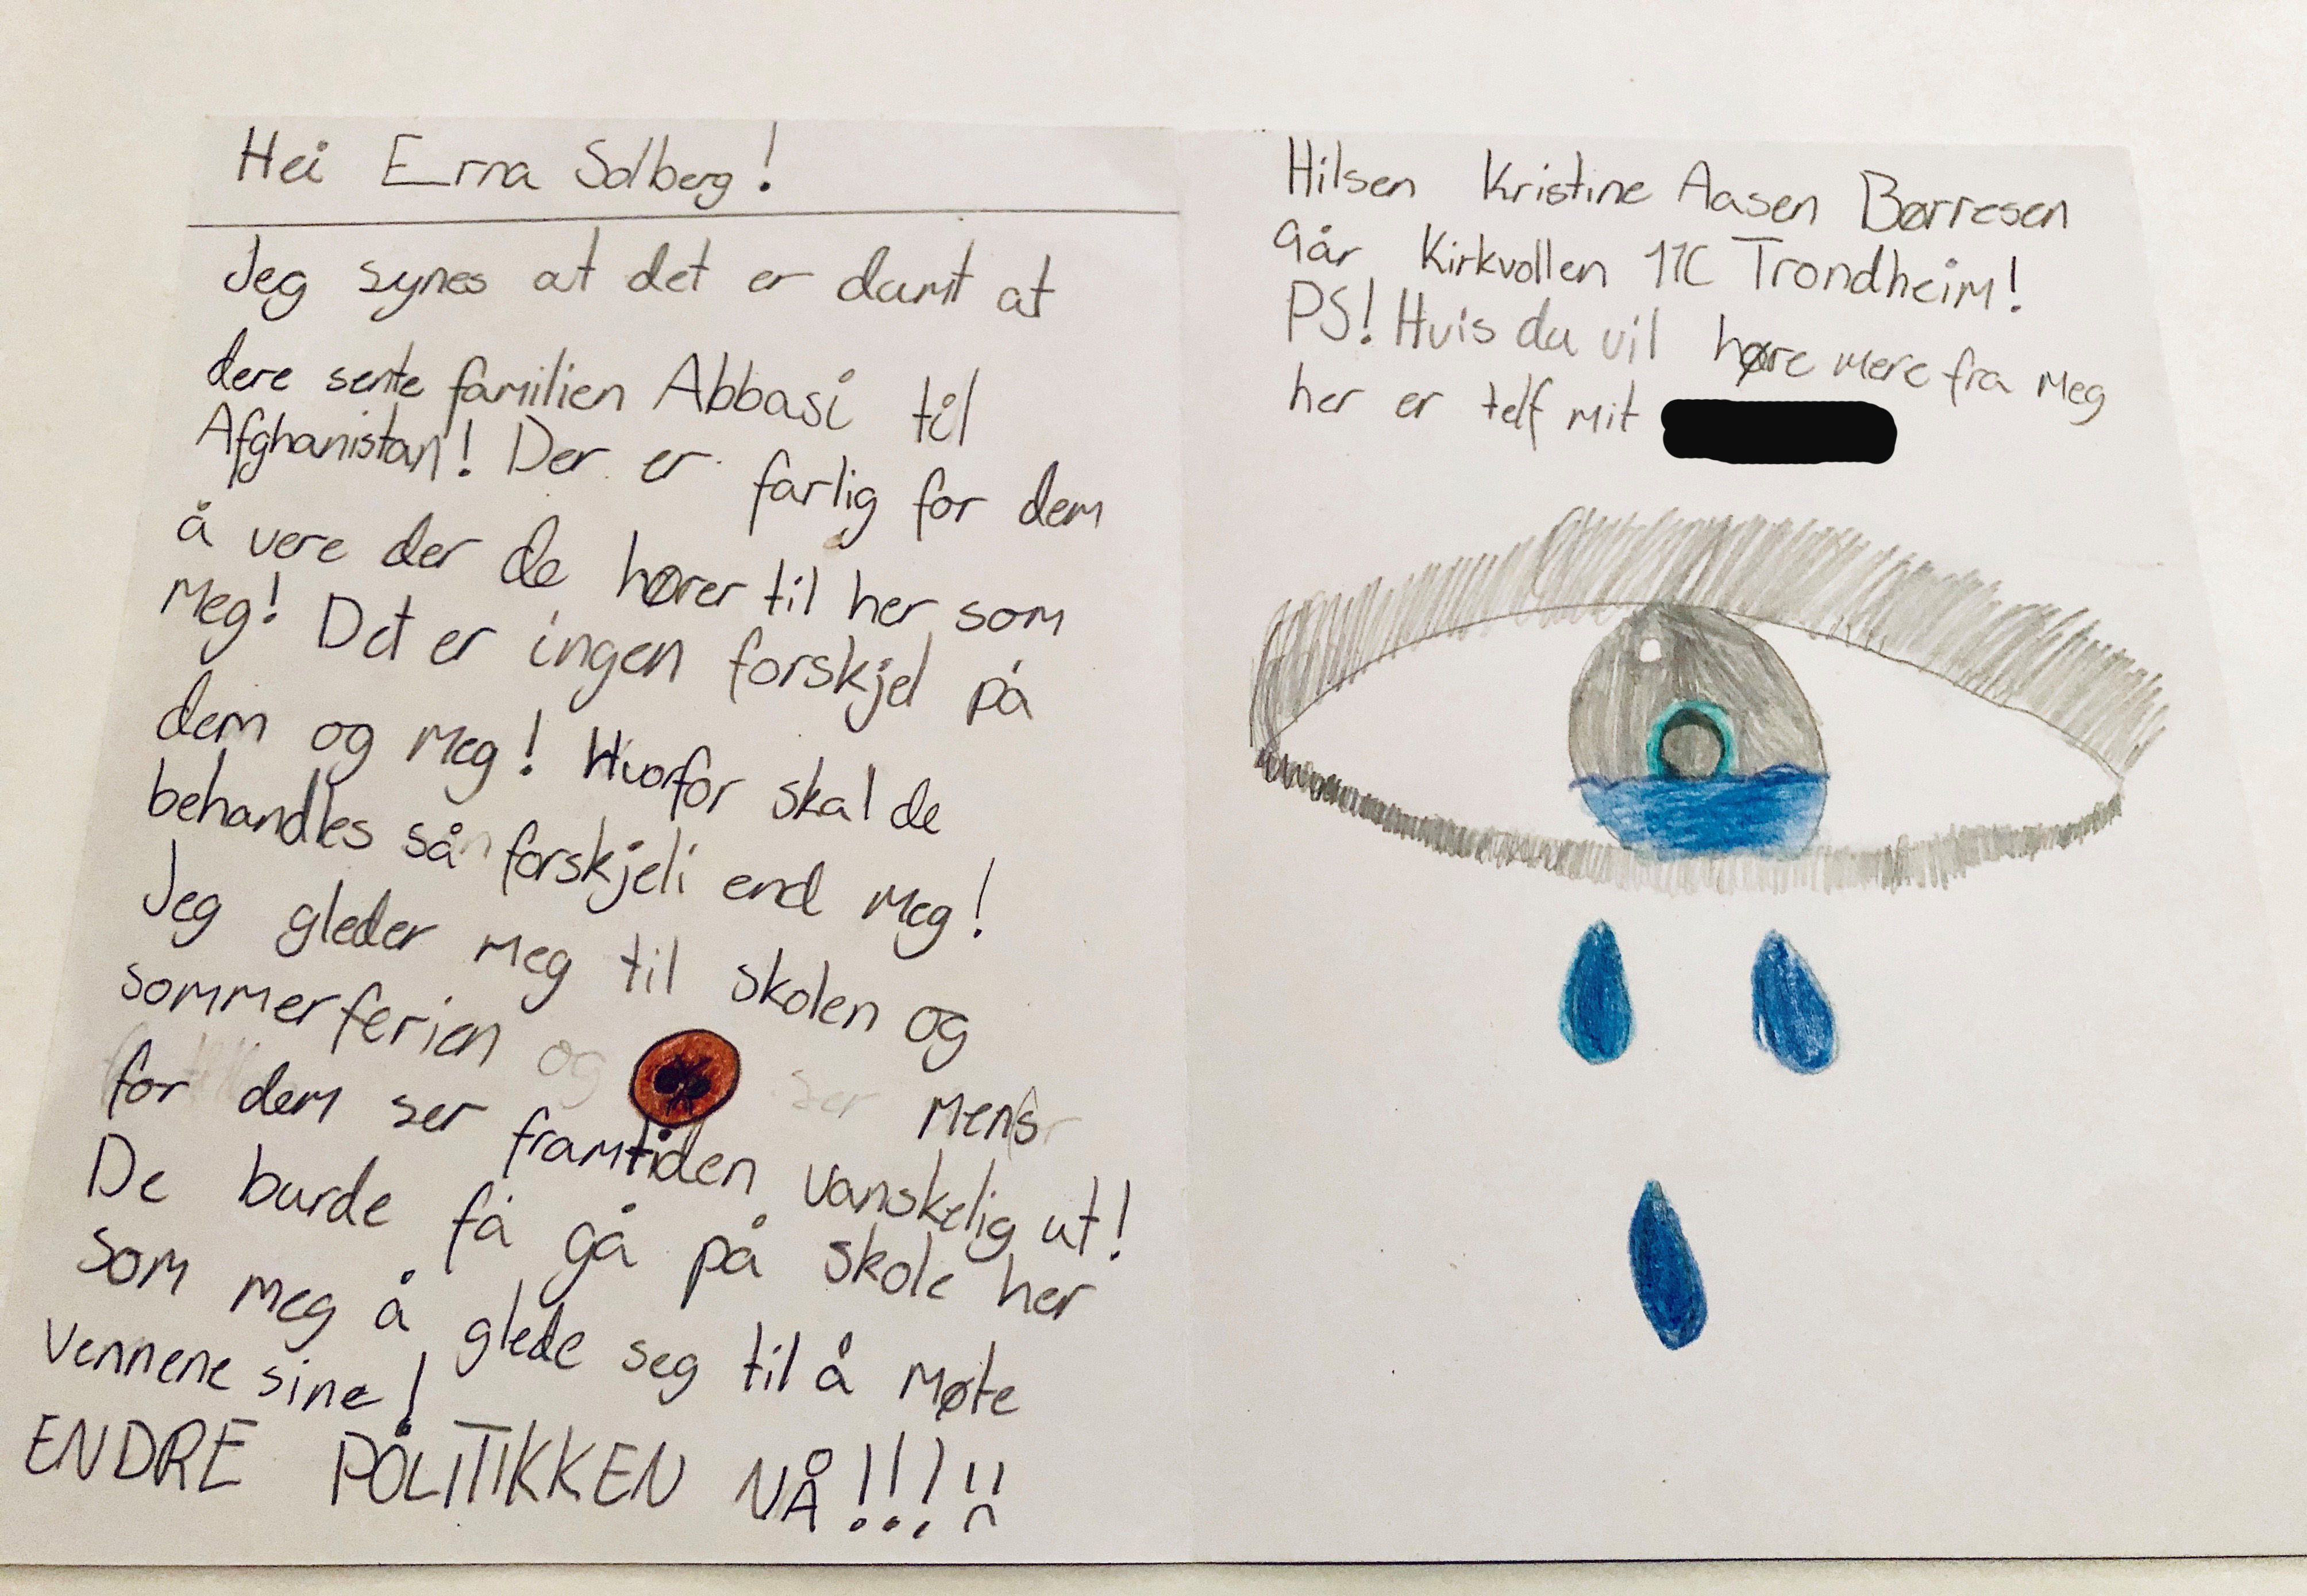 Hei Erna Solberg!
Jeg synes at det er dumt at
dere sente familien Abbasi til
Afghanistan! Der er farlig for dem
å vere der de hører til her som
meg! Det er ingen forskjel på
dem og meg! Hvorfor skal de
behandles sån forskjeli end meg!
Jeg gleder meg til skolen og
sommerferien og ser mens
for dem ser framtiden vanskelig ut!
De burde få gå på skole her
som meg å glede seg til å møte
vennene sine!
ENDRE POLITIKKEN NÅ!!!
Hilsen Kristine Aasen Børresen
går Kirkvollen Trondheim!
PS! Hvis du vil høre mere fra meg
her er telf mit